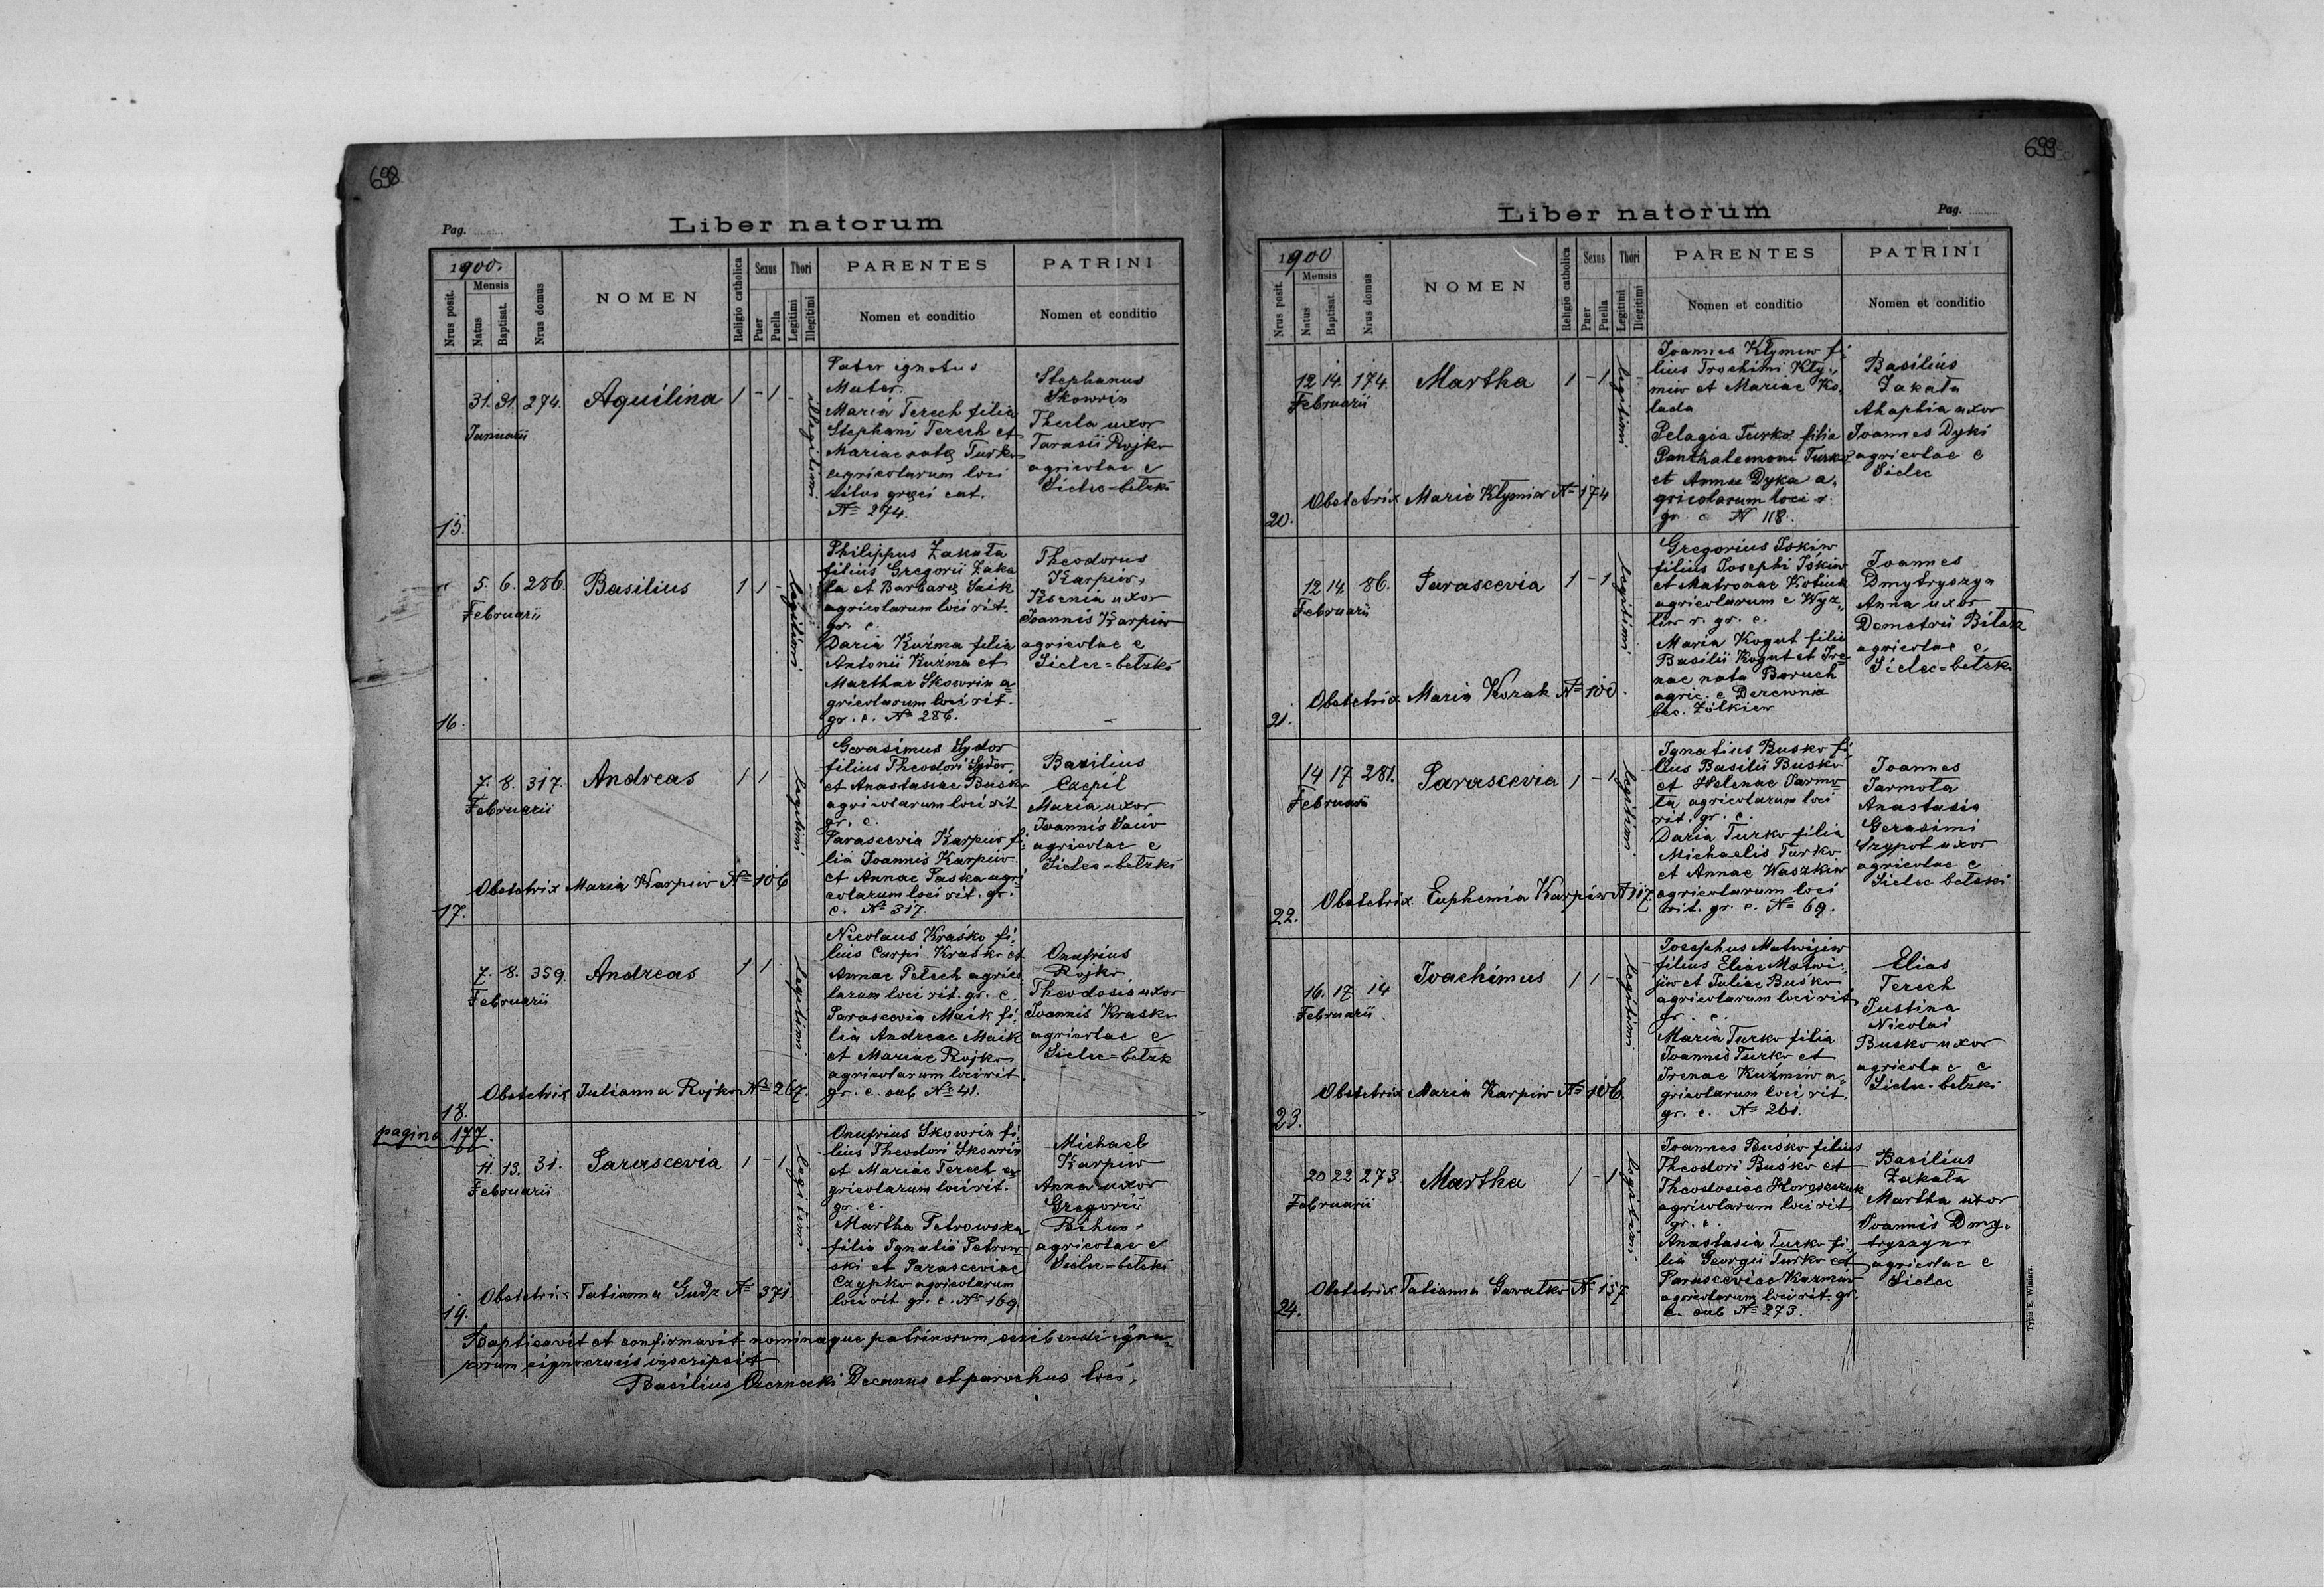 698
Pag.
Liber natorum
1900.
Nrus posit.
Mensis
Natus
Baptisat.
Nrus domus
NOMEN
Religio catholica
Sexus
Puer
Puella
Thori
Legitimi
Illegitimi
PARENTES
Nomen et conditio
PATRINI
Nomen et conditio
15.
31. 31. 274.
Januarii
Aquilina
1 - 1 -
illegitimi
Pater ignotus
Mater
Maria Terech filia
Stephani Terech et
Mariae natę Turko
agricolarum loci
ritus gręci cat.
Nº 274.
Stephanus
Skowrin
Thecla uxor
Tarasii Rojko
agricolae e
Sielec-bełzki
16.
5. 6. 286.
Februarii
Basilius
1 1 -
legitimi
Philippus Zakała
filius Gregorii Zaka
ła et Barbarę Saik
agricolarum loci rit.
gr. c.
Daria Kuźma filia
Antonii Kuźma et
Marthae Skowrin a=
gricolarum loci rit.
gr. c. Nº 286.
Theodorus
Karpiw,
Ksenia uxor
Joannis Karpiw
agricolae e
Sielec=bełzki
17.
7. 8. 317.
Februarii
Andreas
1 1 -
legitimi
Obstetrix Maria Karpiw Nº 106
Gerasimus Sydor
filius Theodori Sydor
et Anastasiae Busko
agricolarum loci rit
gr. c.
Parascevia Karpiw fi=
lia Joannis Karpiw
et Annae Paska agri
colarum loci rit. gr.
c. Nº 317.
Basilius
Czepil
Maria uxor
Joannis
agricolae e
Sielec-bełzki
18.
7. 8. 359.
Februarii
Andreas
1 1
legitimi
Obstetrix Julianna Rojko Nº 267.
Nicolaus Kraśko fi=
lius Carpi Kraśko et
Annae Petech agrico
larum loci rit. gr. c.
Parascevia Maik fi=
lia Andreae Maik
et Mariae Rojko
agricolarum loci rit
gr. c. sub Nº 41.
Onufrius
Rojko
Theodosia uxor
Joannis Krasko
agricolae e
Sielec=bełzk
pagina 177.
19.
11. 13. 31.
Februarii
Parascevia
1 - 1
legitimi
Obstetrix Tatianna Gudz Nº 371.
Onufrius Skowrin fi=
lius Theodori Skowrin
et Mariae Terech a=
gricolarum loci rit.
gr. c.
Martha Petrowska
filia Ignatii Petrow=
ski et Parasceviae
Czypko agricolarum
loci rit. gr. c. Nº 169.
Michael
Karpiw
Anna uxor
Gregorii
Bihun
agricolae e
Sielec-bełzki
Baptisavit et confirmavit nominaque patrinorum scribendi igna=
rorum signo crucis inscripsit
Basilius Czernecki Decanus et parochus loci,
699
Liber natorum
Pag.
1900
Nrus posit.
Mensis
Natus
Baptisat.
Nrus domus
NOMEN
Religio catholica
Sexus
Puer
Puella
Thori
Legitimi
Illegitimi
PARENTES
Nomen et conditio
PATRINI
Nomen et conditio
20.
12 14. 174.
Februarii
Martha
1 - 1
legitimi
Obstetrix Maria Kłymiw Nº 174
Joannes Kłymiw fi=
lius Trochimi Kły=
miw et Mariae Ko=
lada
Pelagia Turko filia
Panthalemoni Turko
et Annae Dyka a=
gricolarum loci r.
gr. c. N 118.
Basilius
Zakała
Ahaphia uxor
Joannes Dyki
agricolae e
Sielec
21.
12 14. 86.
Februarii
Parascevia
1 - 1
legitimi
Obstetrix Maria Kozak Nº 100.
Gregorius Iśkiw
filius Josephi Iśkiw
et Matronae Kotiuk
agricolarum e Wyz=
liw r. gr. c.
Maria Kogut filia
Basilii Kogut et Ire=
nae nata Boruch
agric. e Derewnia
bec. Żółkiew
Joannes
Dmytryszyn
Anna uxor
Demetrii Biłasz
agricolae e
Sielec=bełzki
22.
14 17 281.
Februarii
Parascevia
1 - 1
legitimi
Obstetrix Euphemia Karpiw N 117.
Ignatius Busko fi=
lius Basilii Busko
et Helenae Jarmo=
ła agricolarum loci
rit. gr. c.
Daria Turko filia
Michaelis Turko
et Annae Waszkiw
agricolarum loci
rit. gr. c. Nº 69.
Joannes
Jarmoła
Anastasia
Gerasimi
Szypot uxor
agricolae e
Sielec bełzki
23.
16. 17 14
Februarii
Joachimus
1 1 -
legitimi
Obstetrix Maria Karpiw Nº 106.
Josephus Matwijiw
filius Eliae Matwi=
jiw et Juliae Buśko
agricolarum loci rit
gr. c.
Maria Turko filia
Joannis Turko et
Irenae Kuźmiw a=
gricolarum loci rit.
gr. c. Nº 261.
Elias
Terech
Justina
Nicolai
Busko uxor
agricolae e
Sielec-bełzki
24.
20 22 273.
Februarii
Martha
1 - 1
legitimi
Obstetrix Tatianna Gawałko Nº 157
Joannes Buśko filius
Theodori Buśko et
Theodosiae
agricolarum loci rit
gr. c.
Anastasia Turko fi=
lia Georgii Turko et
Parasceviae Kuzmiw
agricolarum loci rit. gr.
c. sub Nº 273.
Basilius
Zakała
Martha uxor
Joannis Dmy=
tryszyn
agricolae e
Sielec
Typis E. Winiarz.